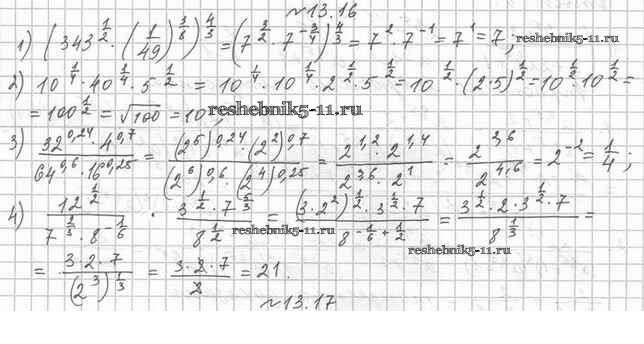 №13.16
1) (343^{1/2} · (1/49)^{3/8})^{4/3} = (7^{3/2} · 7^{-3/4})^{4/3} = 7^2 · 7^{-1} = 7^1 = 7; reshebnik5-11.ru
2) 10^{1/4} · 40^{1/4} · 5^{1/2} = 10^{1/4} · 10^{1/4} · 2^{1/2} · 5^{1/2} = 10^{1/2} · (2·5)^{1/2} = 10^{1/2} · 10^{1/2} =
= 100^{1/2} = √100 = 10 reshebnik5-11.ru
3) (32^{0,24} · 4^{0,7}) / (64^{0,6} · 16^{0,25}) = ((2^5)^{0,24} · (2^2)^{0,7}) / ((2^6)^{0,6} · (2^4)^{0,25}) = (2^{1,2} · 2^{1,4}) / (2^{3,6} · 2^1) = 2^{2,6} / 2^{4,6} = 2^{-2} = 1/4;
4) 12^{1/2} / (7^{2/3} · 8^{-1/6}) · (3^{1/2} · 7^{5/3}) / 8^{1/2} = ((3·2^2)^{1/2} · 3^{1/2} · 7) / 8^{-1/6 + 1/2} = (3^{1/2} · 2 · 3^{1/2} · 7) / 8^{1/3} =
reshebnik5-11.ru
reshebnik5-11.ru
= (3·2·7) / (2^3)^{1/3} = (3·2·7) / 2 = 21.
№13.17